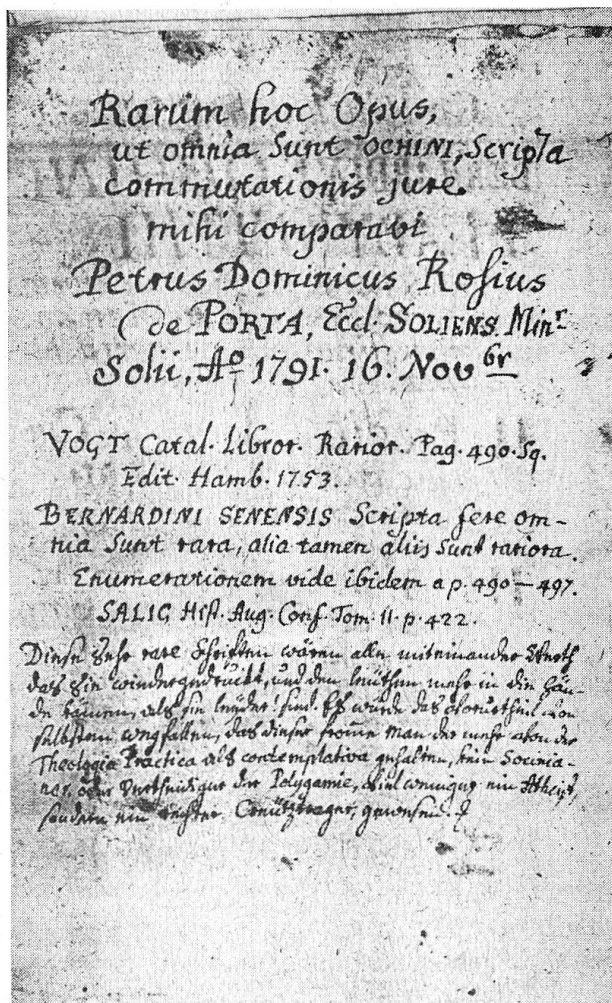 Rarum hoc Opus,
ut omnia sunt OCHINI, scripta
commutationis jure.
mihi comparavi
Petrus Dominicus Rosius
de PORTA, Eccl. SOLIENS. Minr
Solii, Ao 1791. 16. Nov 6r
VOGT Catal. Libror. Rarior. Pag. 490. Sq.
Edit. Hamb. 1753.
BERNARDINI SENENSIS Scripta fere om-
nia sunt rara, alia tamen aliis sunt rariora.
Enumerationem vide ibidem a p. 490 — 497.
SALIG Hist. Aug. Conf. Tom. II. p. 422.
Diese sehr rare Schriften wären alle miteinander Werth
das sie wiedergedruckt, und den leüthen mehr in die Hän-
de kämen, als sie leyder! sind. Es würde das Vorurtheil von
selbsten wegfallen, das dieser fromme Man der mehr von der
Theologia Practica als contemplativa gehalten, kein Socinia-
ner, oder Vertheidiger der Polygamie, viel weniger ein Atheist,
sondern ein rechter Creützträger, gewesen.